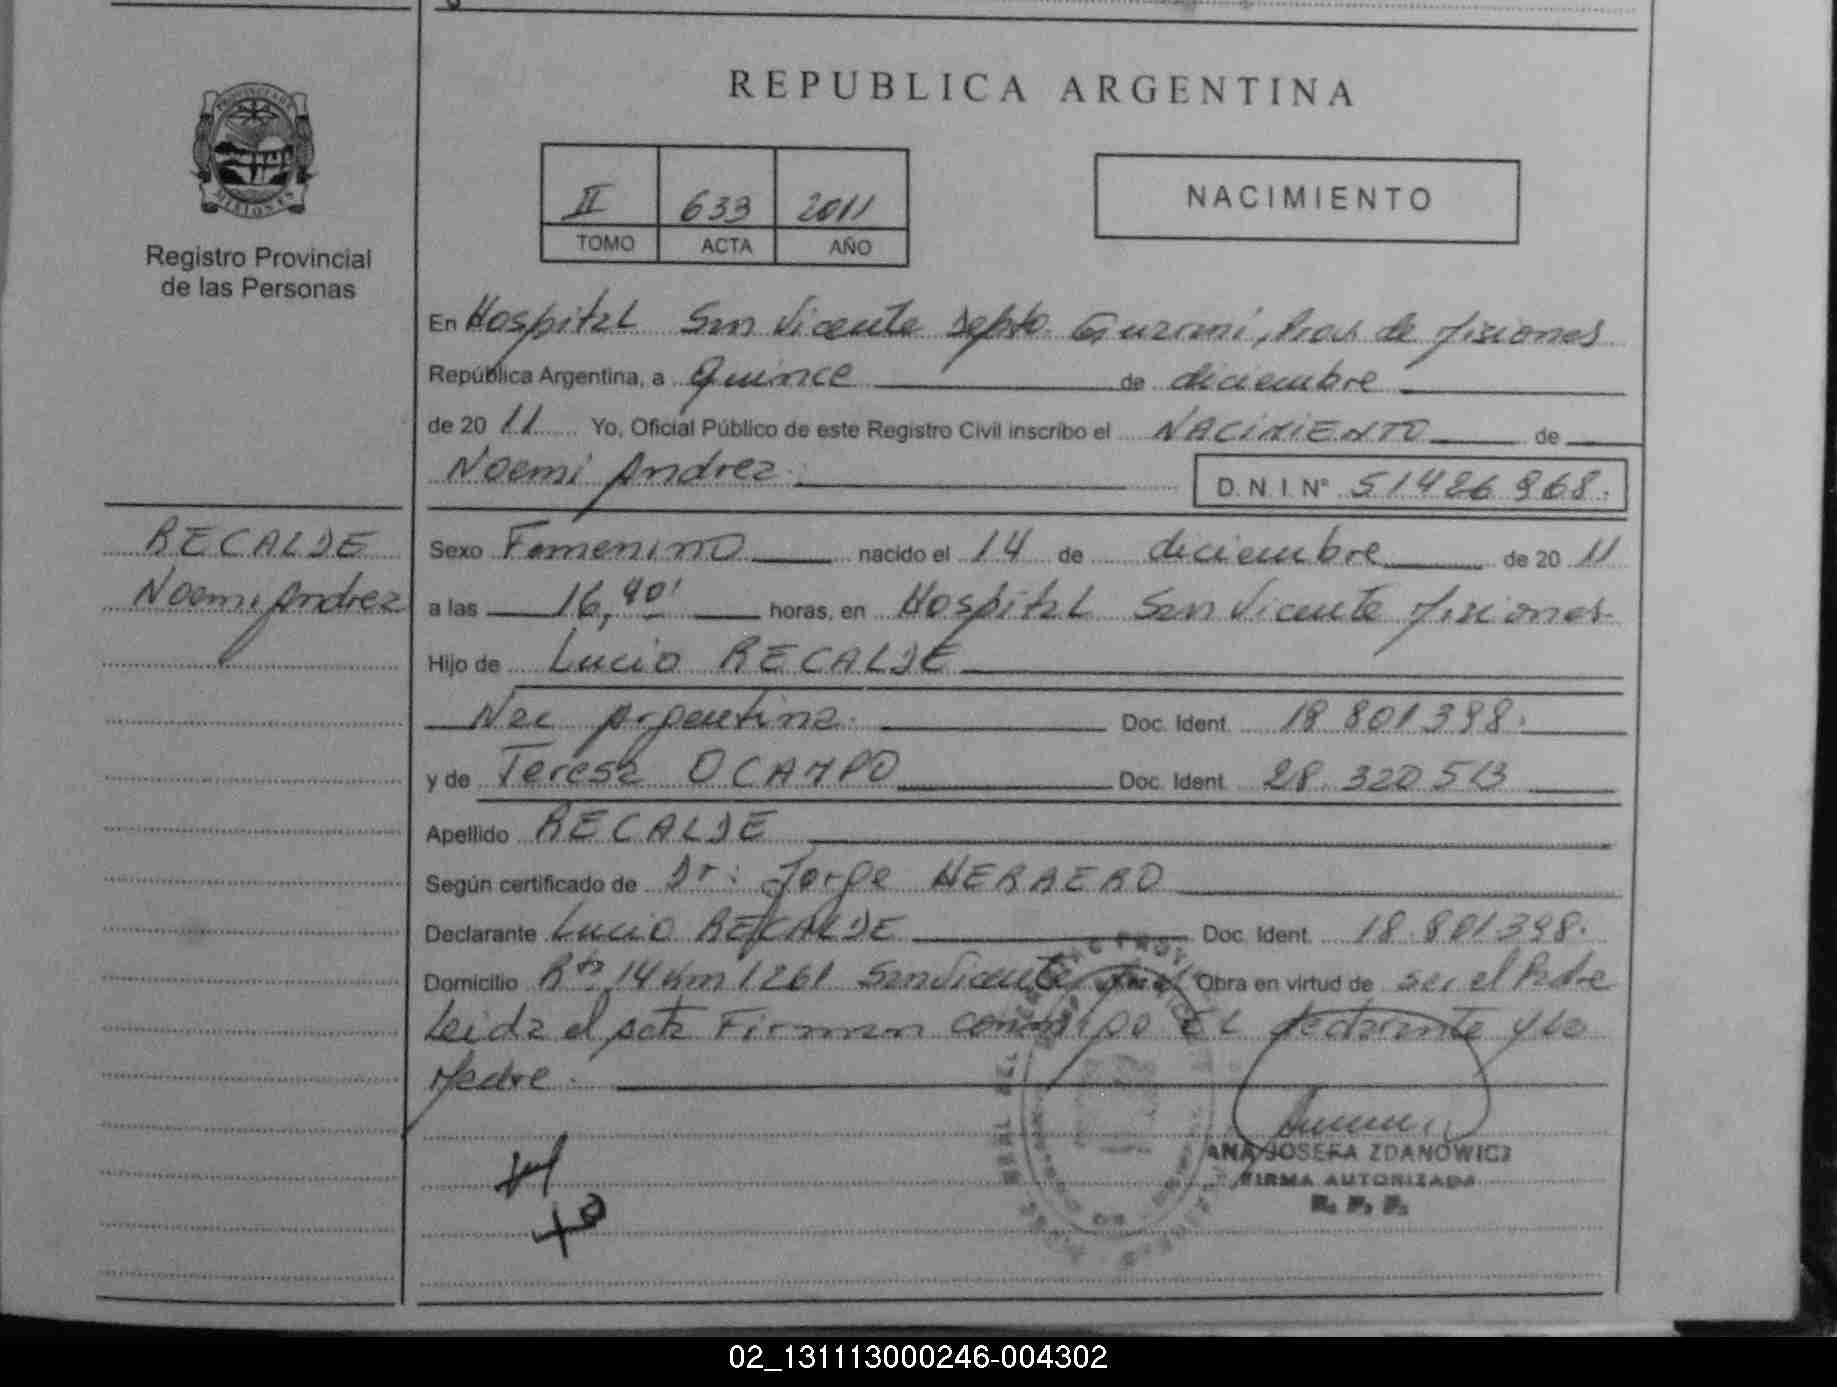 REPUBLICA ARGENTINA
PROVINCIA DE
MISIONES
Registro Provincial
de las Personas
II 633 2011
TOMO ACTA AÑO
NACIMIENTO
En Hospital San Vicente Depto Guaraní, Prov. de Misiones
República Argentina, a Quince de diciembre
de 20 11 Yo, Oficial Público de este Registro Civil inscribo el NACIMIENTO de
Noemi Andrez D.N.I. Nº 51426968.
RECALDE
Noemi Andrez
Sexo Femenino nacido el 14 de diciembre de 20 11
a las 16,40' horas, en Hospital San Vicente Misiones
Hijo de Lucio RECALDE
Nac Argentina. Doc. Ident. 18 801 398.
y de Teresa OCAMPO Doc. Ident. 28 320 513
Apellido RECALDE
Según certificado de Dr: Jorge HERRERO
Declarante Lucio RECALDE Doc. Ident. 18.801.398.
Domicilio Rta 14 Km 1261 San Vicente Obra en virtud de ser el Padre
Leida el acta Firman conmigo EL declarante y La
Madre.
ANA JOSEFA ZDANOWICZ
FIRMA AUTORIZADA
R. P. P.
02_131113000246-004302